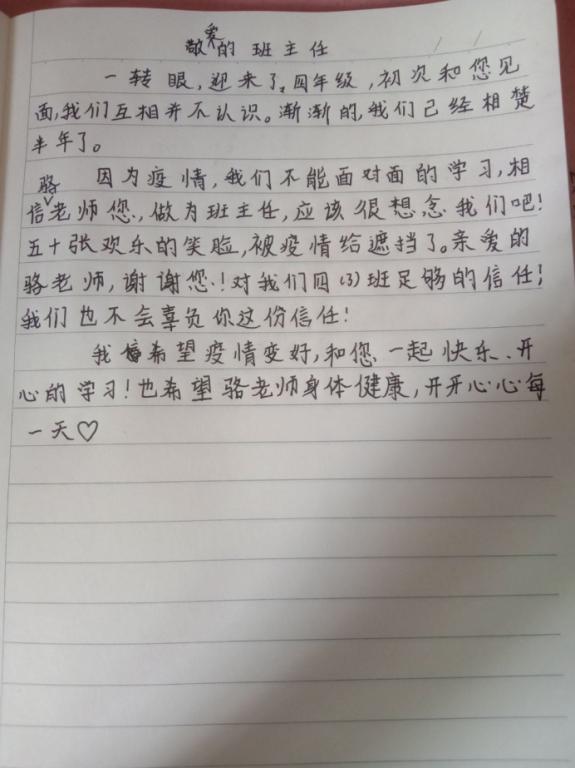 敬爱的班主任
一转眼,迎来了四年级,初次和您见
面,我们互相并不认识。渐渐的,我们已经相楚
半年了。
因为疫情,我们不能面对面的学习,相
信骆老师您,做为班主任,应该很想念我们吧!
五十张欢乐的笑脸,被疫情给遮挡了。亲爱的
骆老师,谢谢您!对我们四(3)班足够的信任!
我们也不会辜负你这份信任!
我希望疫情变好,和您一起快乐、开
心的学习!也希望骆老师身体健康,开开心心每
一天♡